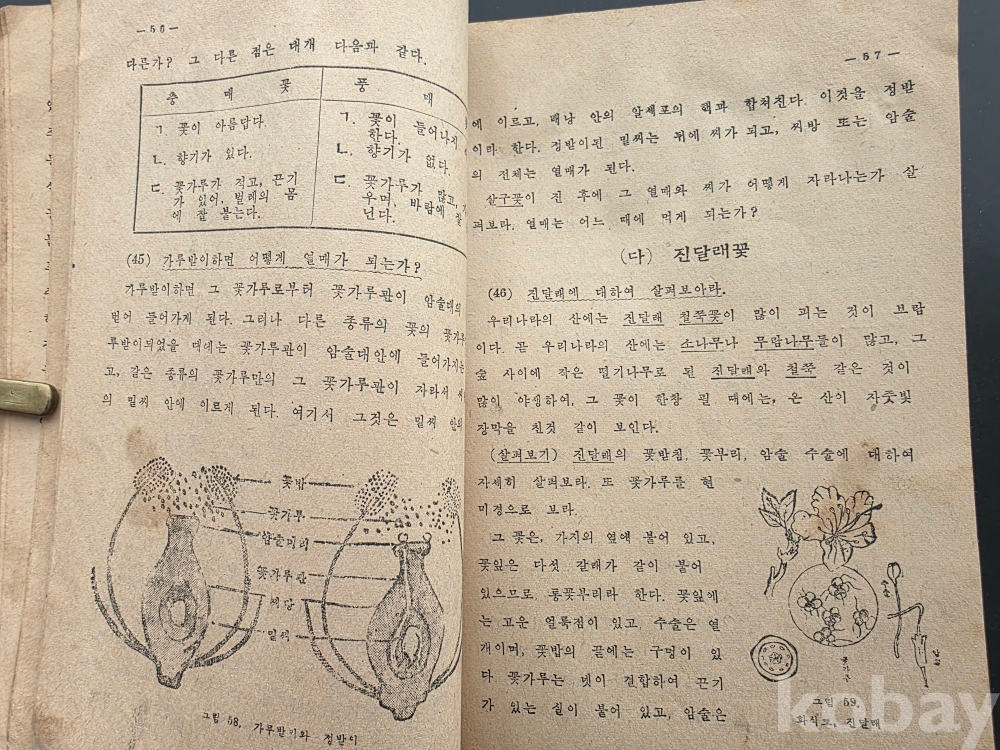 —56—
다른가? 그 다른 점은 대개 다음과 같다.
충 매 꽃
ㄱ. 꽃이 아름답다.
ㄴ. 향기가 있다.
ㄷ. 꽃가루가 적고, 끈기
가 있어, 벌레의 몸
에 잘 붙는다.
풍 매
ㄱ. 꽃이 들어나지
한다.
ㄴ. 향기가 없다.
ㄷ. 꽃가루가 많고,
우며, 바람에 잘
닌다.
(45) 가루받이하면 어떻게 열매가 되는가?
가루받이하면 그 꽃가루로부터 꽃가루관이 암술대의
벋어 들어가게 된다. 그러나 다른 종류의 꽃의 꽃가
루받이되었을 때에는 꽃가루관이 암술대안에 들어가지는
고, 같은 종류의 꽃가루만의 그 꽃가루관이 자라서
의 밑씨 안에 이르게 된다. 여기서 그것은 밑씨 안의
꽃밥
꽃가루
암술머리
꽃가루관
밑씨
그림 58, 가루받이와 정받이
—57—
에 이르고, 배낭 안의 알세포의 핵과 합쳐진다. 이것을 정받
이라 한다. 정받이된 밑씨는 뒤에 씨가 되고, 씨방 또는 암술
의 전체는 열매가 된다.
살구꽃이 진 후에 그 열매와 씨가 어떻게 자라나는가 살
펴보라. 열매는 어느 때에 먹게 되는가?
(다) 진달래꽃
(46) 진달래에 대하여 살펴보아라.
우리나라의 산에는 진달래 철쭉꽃이 많이 피는 것이 보람
이다. 곧 우리나라의 산에는 소나무나 무람나무들이 많고, 그
숲 사이에 작은 떨기나무로 된 진달래와 철쭉 같은 것이
많이 야생하여, 그 꽃이 한창 필 때에는, 온 산이 자줏빛
장막을 친것 같이 보인다.
(살펴보기) 진달래의 꽃받침, 꽃부리, 암술 수술에 대하여
자세히 살펴보라. 또 꽃가루를 현
미경으로 보라.
그 꽃은, 가지의 옆에 붙어 있고,
꽃잎은 다섯 갈래가 같이 붙어
있으므로, 통꽃부리라 한다. 꽃잎에
는 고운 얼룩점이 있고, 수술은 열
개이며, 꽃밥의 끝에는 구멍이 있
다 꽃가루는 넷이 결합하여 끈기
가 있는 실이 붙어 있고, 암술은
꽃가루
그림 59,
화식도, 진달래
kobay